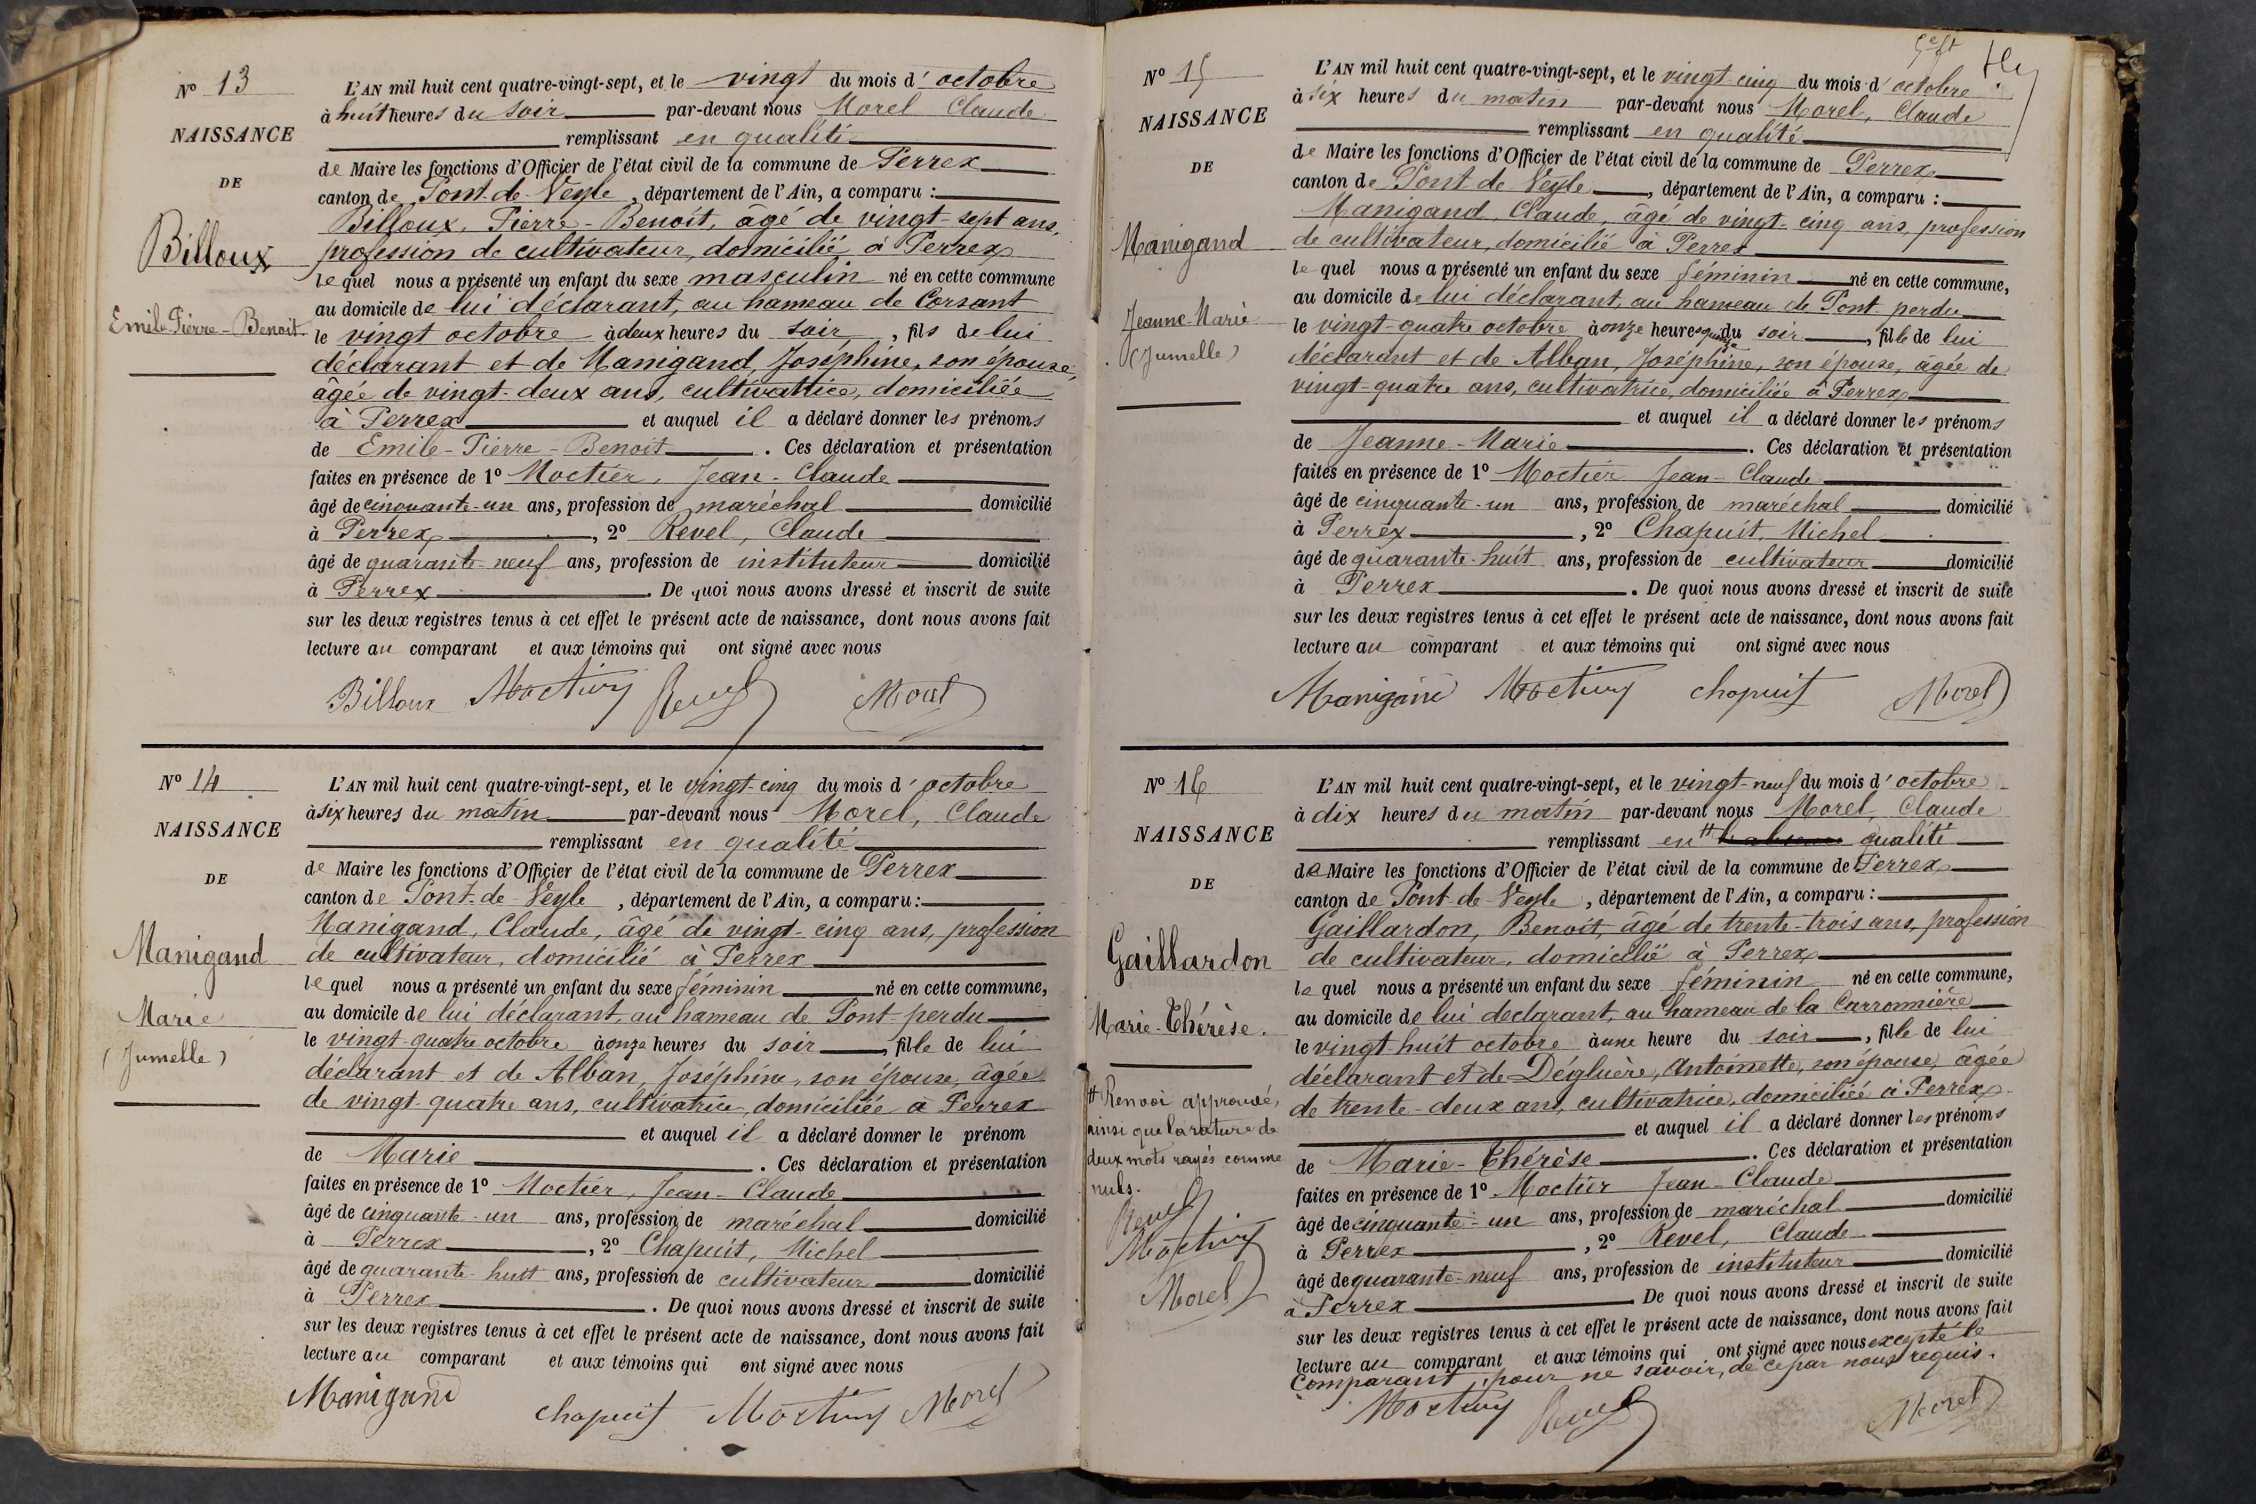 N° 13
NAISSANCE
DE
Billoux
Emile-Pierre-Benoit
L'AN mil huit cent quatre-vingt-sept, et le vingt du mois d'octobre
à huit heures du soir par-devant nous Morel Claude
remplissant en qualité
de Maire les fonctions d'Officier de l'état civil de la commune de Perrex
canton de Pont-de-Veyle, département de l'Ain, a comparu :
Billoux, Pierre-Benoît, âgé de vingt-sept ans,
profession de cultivateur, domicilié à Perrex
lequel nous a présenté un enfant du sexe masculin né en cette commune
au domicile de lui déclarant, au hameau de Corsant
le vingt octobre à deux heures du soir, fils de lui
déclarant et de Manigand, Joséphine, son épouse,
âgée de vingt-deux ans, cultivatrice, domiciliée
à Perrex et auquel il a déclaré donner les prénoms
de Emile-Pierre-Benoit. Ces déclaration et présentation
faites en présence de 1° Moctier, Jean-Claude
âgé de cinquante-un ans, profession de maréchal domicilié
à Perrex, 2° Revel, Claude
âgé de quarante-neuf ans, profession de instituteur domicilié
à Perrex. De quoi nous avons dressé et inscrit de suite
sur les deux registres tenus à cet effet le présent acte de naissance, dont nous avons fait
lecture au comparant et aux témoins qui ont signé avec nous
Billoux Moctier Revel Morel
N° 14
NAISSANCE
DE
Manigand
Marie
(Jumelle)
L'AN mil huit cent quatre-vingt-sept, et le vingt-cinq du mois d'octobre
à six heures du matin par-devant nous Morel, Claude
remplissant en qualité
de Maire les fonctions d'Officier de l'état civil de la commune de Perrex
canton de Pont-de-Veyle, département de l'Ain, a comparu :
Manigand, Claude, âgé de vingt-cinq ans, profession
de cultivateur, domicilié à Perrex
lequel nous a présenté un enfant du sexe féminin né en cette commune,
au domicile de lui déclarant, au hameau de Pont-perdu
le vingt-quatre octobre à onze heures du soir, fille de lui
déclarant et de Alban, Joséphine, son épouse, âgée
de vingt-quatre ans, cultivatrice, domiciliée à Perrex
et auquel il a déclaré donner le prénom
de Marie. Ces déclaration et présentation
faites en présence de 1° Moctier, Jean-Claude
âgé de cinquante-un ans, profession de maréchal domicilié
à Perrex, 2° Chapuit, Michel
âgé de quarante-huit ans, profession de cultivateur domicilié
à Perrex. De quoi nous avons dressé et inscrit de suite
sur les deux registres tenus à cet effet le présent acte de naissance, dont nous avons fait
lecture au comparant et aux témoins qui ont signé avec nous
Manigand chapuit Moctier Morel
N° 15
NAISSANCE
DE
Manigand
Jeanne Marie
(Jumelle)
L'AN mil huit cent quatre-vingt-sept, et le vingt-cinq du mois d'octobre
à six heures du matin par-devant nous Morel, Claude
remplissant en qualité
de Maire les fonctions d'Officier de l'état civil de la commune de Perrex
canton de Pont de Veyle, département de l'Ain, a comparu :
Manigand, Claude, âgé de vingt-cinq ans, profession
de cultivateur, domicilié à Perrex
lequel nous a présenté un enfant du sexe féminin né en cette commune,
au domicile de lui déclarant, au hameau de Pont-perdu
le vingt-quatre octobre à onze heures quinze du soir, fille de lui
déclarant et de Alban, Joséphine, son épouse, âgée de
vingt-quatre ans, cultivatrice, domiciliée à Perrex
et auquel il a déclaré donner les prénoms
de Jeanne-Marie. Ces déclaration et présentation
faites en présence de 1° Moctier Jean-Claude
âgé de cinquante-un ans, profession de maréchal domicilié
à Perrex, 2° Chapuit, Michel
âgé de quarante-huit ans, profession de cultivateur domicilié
à Perrex. De quoi nous avons dressé et inscrit de suite
sur les deux registres tenus à cet effet le présent acte de naissance, dont nous avons fait
lecture au comparant et aux témoins qui ont signé avec nous
Manigand Moctier chapuit Morel
N° 16
NAISSANCE
DE
Gaillardon
Marie-Thérèse.
# Renvoi approuvé,
ainsi que la rature de
deux mots rayés comme
nuls.
Revel
Moctier
Morel
L'AN mil huit cent quatre-vingt-sept, et le vingt-neuf du mois d'octobre
à dix heures du matin par-devant nous Morel, Claude
remplissant en # qualité
de Maire les fonctions d'Officier de l'état civil de la commune de Perrex
canton de Pont-de-Veyle, département de l'Ain, a comparu :
Gaillardon, Benoît, âgé de trente-trois ans, profession
de cultivateur, domicilié à Perrex
lequel nous a présenté un enfant du sexe féminin né en cette commune,
au domicile de lui déclarant, au hameau de la Carronnière
le vingt huit octobre à une heure du soir, fille de lui
déclarant et de Dégluère, Antoinette, son épouse, âgée
de trente-deux ans, cultivatrice, domiciliée à Perrex
et auquel il a déclaré donner les prénoms
de Marie-Thérèse. Ces déclaration et présentation
faites en présence de 1° Moctier Jean-Claude
âgé de cinquante-un ans, profession de maréchal domicilié
à Perrex, 2° Revel, Claude
âgé de quarante-neuf ans, profession de instituteur domicilié
à Perrex De quoi nous avons dressé et inscrit de suite
sur les deux registres tenus à cet effet le présent acte de naissance, dont nous avons fait
lecture au comparant et aux témoins qui ont signé avec nous excepté le
comparant, pour ne savoir, de ce par nous requis.
Moctier Revel Morel